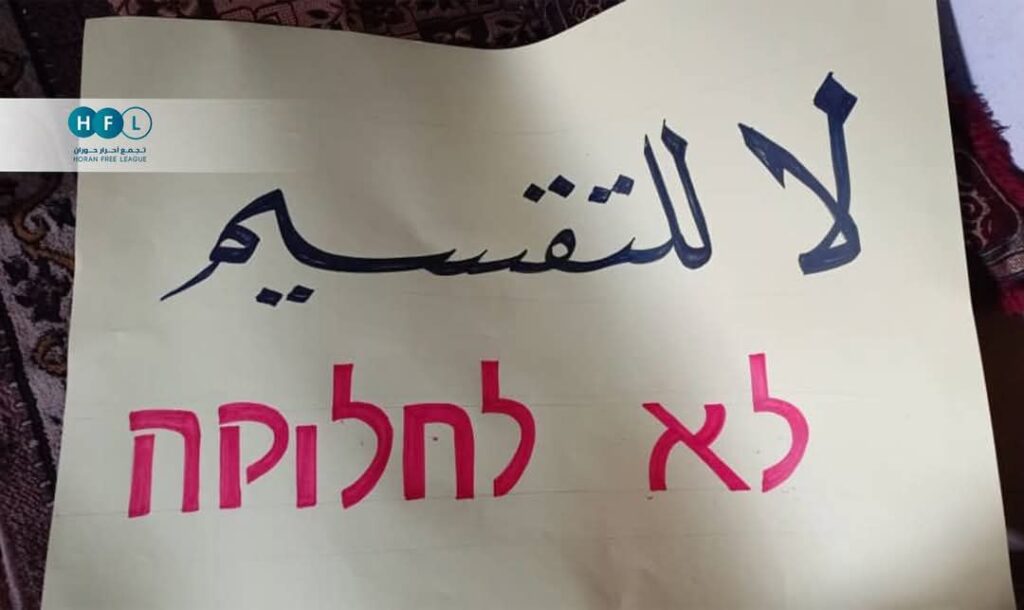 HFL
تجمع أحرار حوران
HORAN FREE LEAGUE
لا للتقسيم
לא לחלוקה